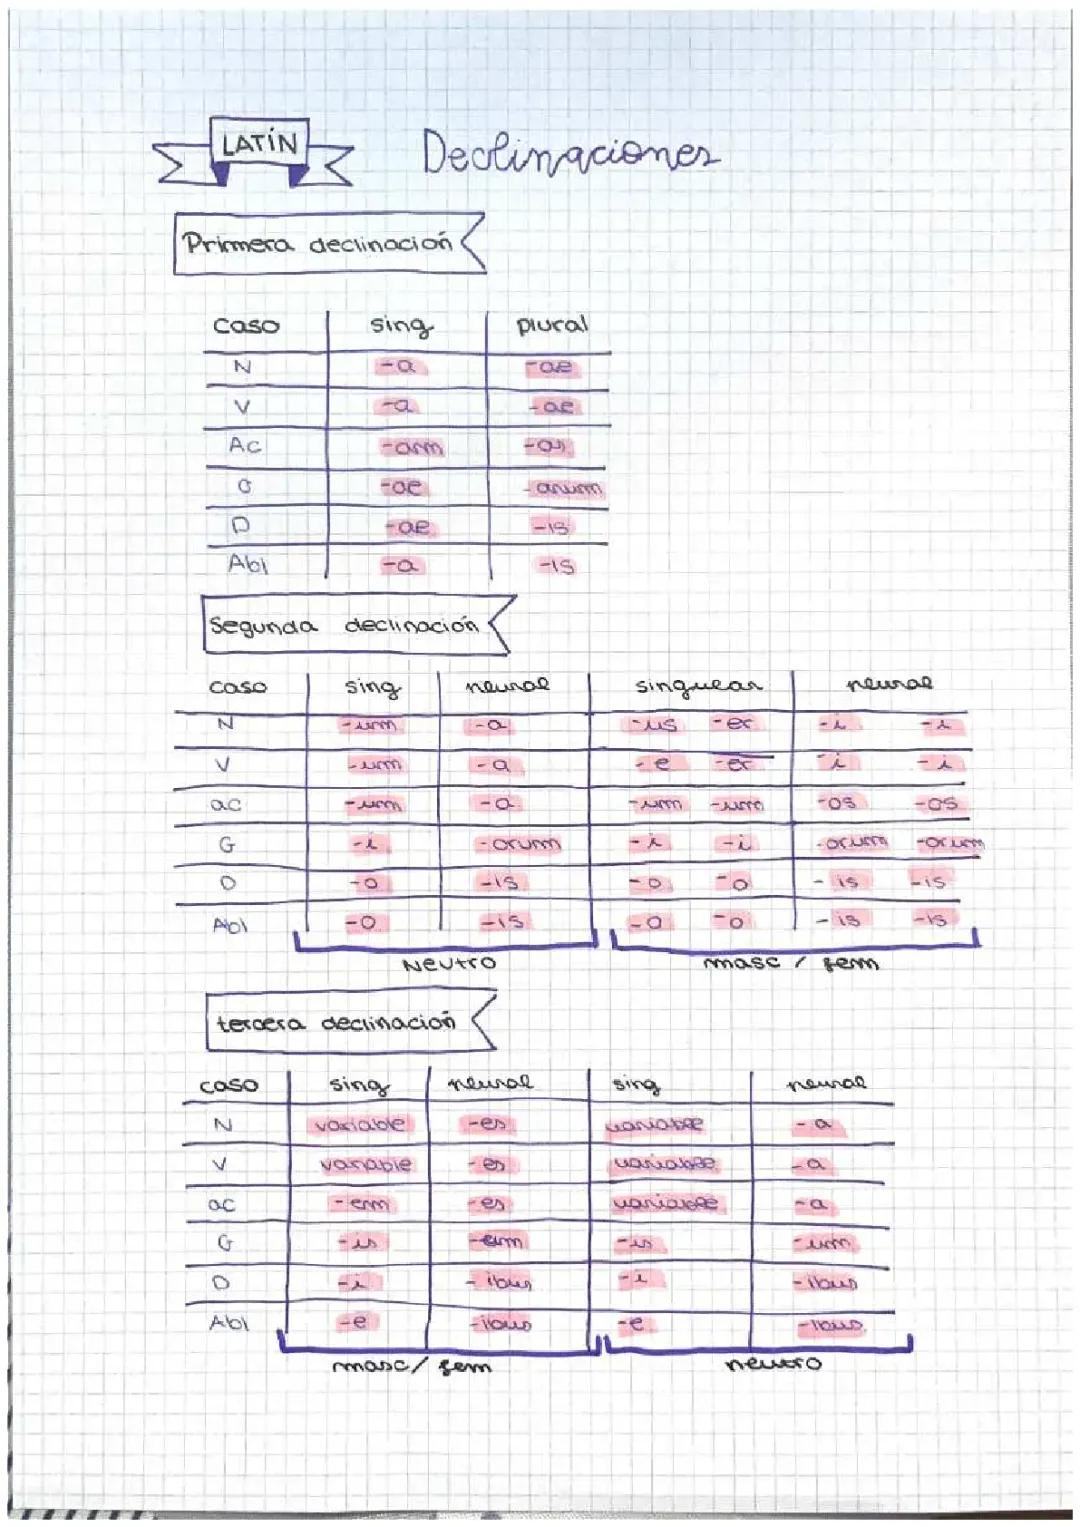 LATÍN
Declinaciones
Primera declinación
caso sing plural
N -a -ae
V -a -ae
Ac -am -as
G -ae -arum
D -ae -is
Abl -a -is
Segunda declinación
caso sing plural singular plural
N -um -a -us -er -i -i
V -um -a -e -er -i -i
ac -um -a -um -um -os -os
G -i -orum -i -i -orum -orum
D -o -is -o -o -is -is
Abl -o -is -o -o -is -is
Neutro masc / fem
tercera declinación
caso sing plural sing plural
N variable -es variable -a
V variable -es variable -a
ac -em -es variable -a
G -is -um -is -um
D -i -ibus -i -ibus
Abl -e -ibus -e -ibus
masc / fem neutro